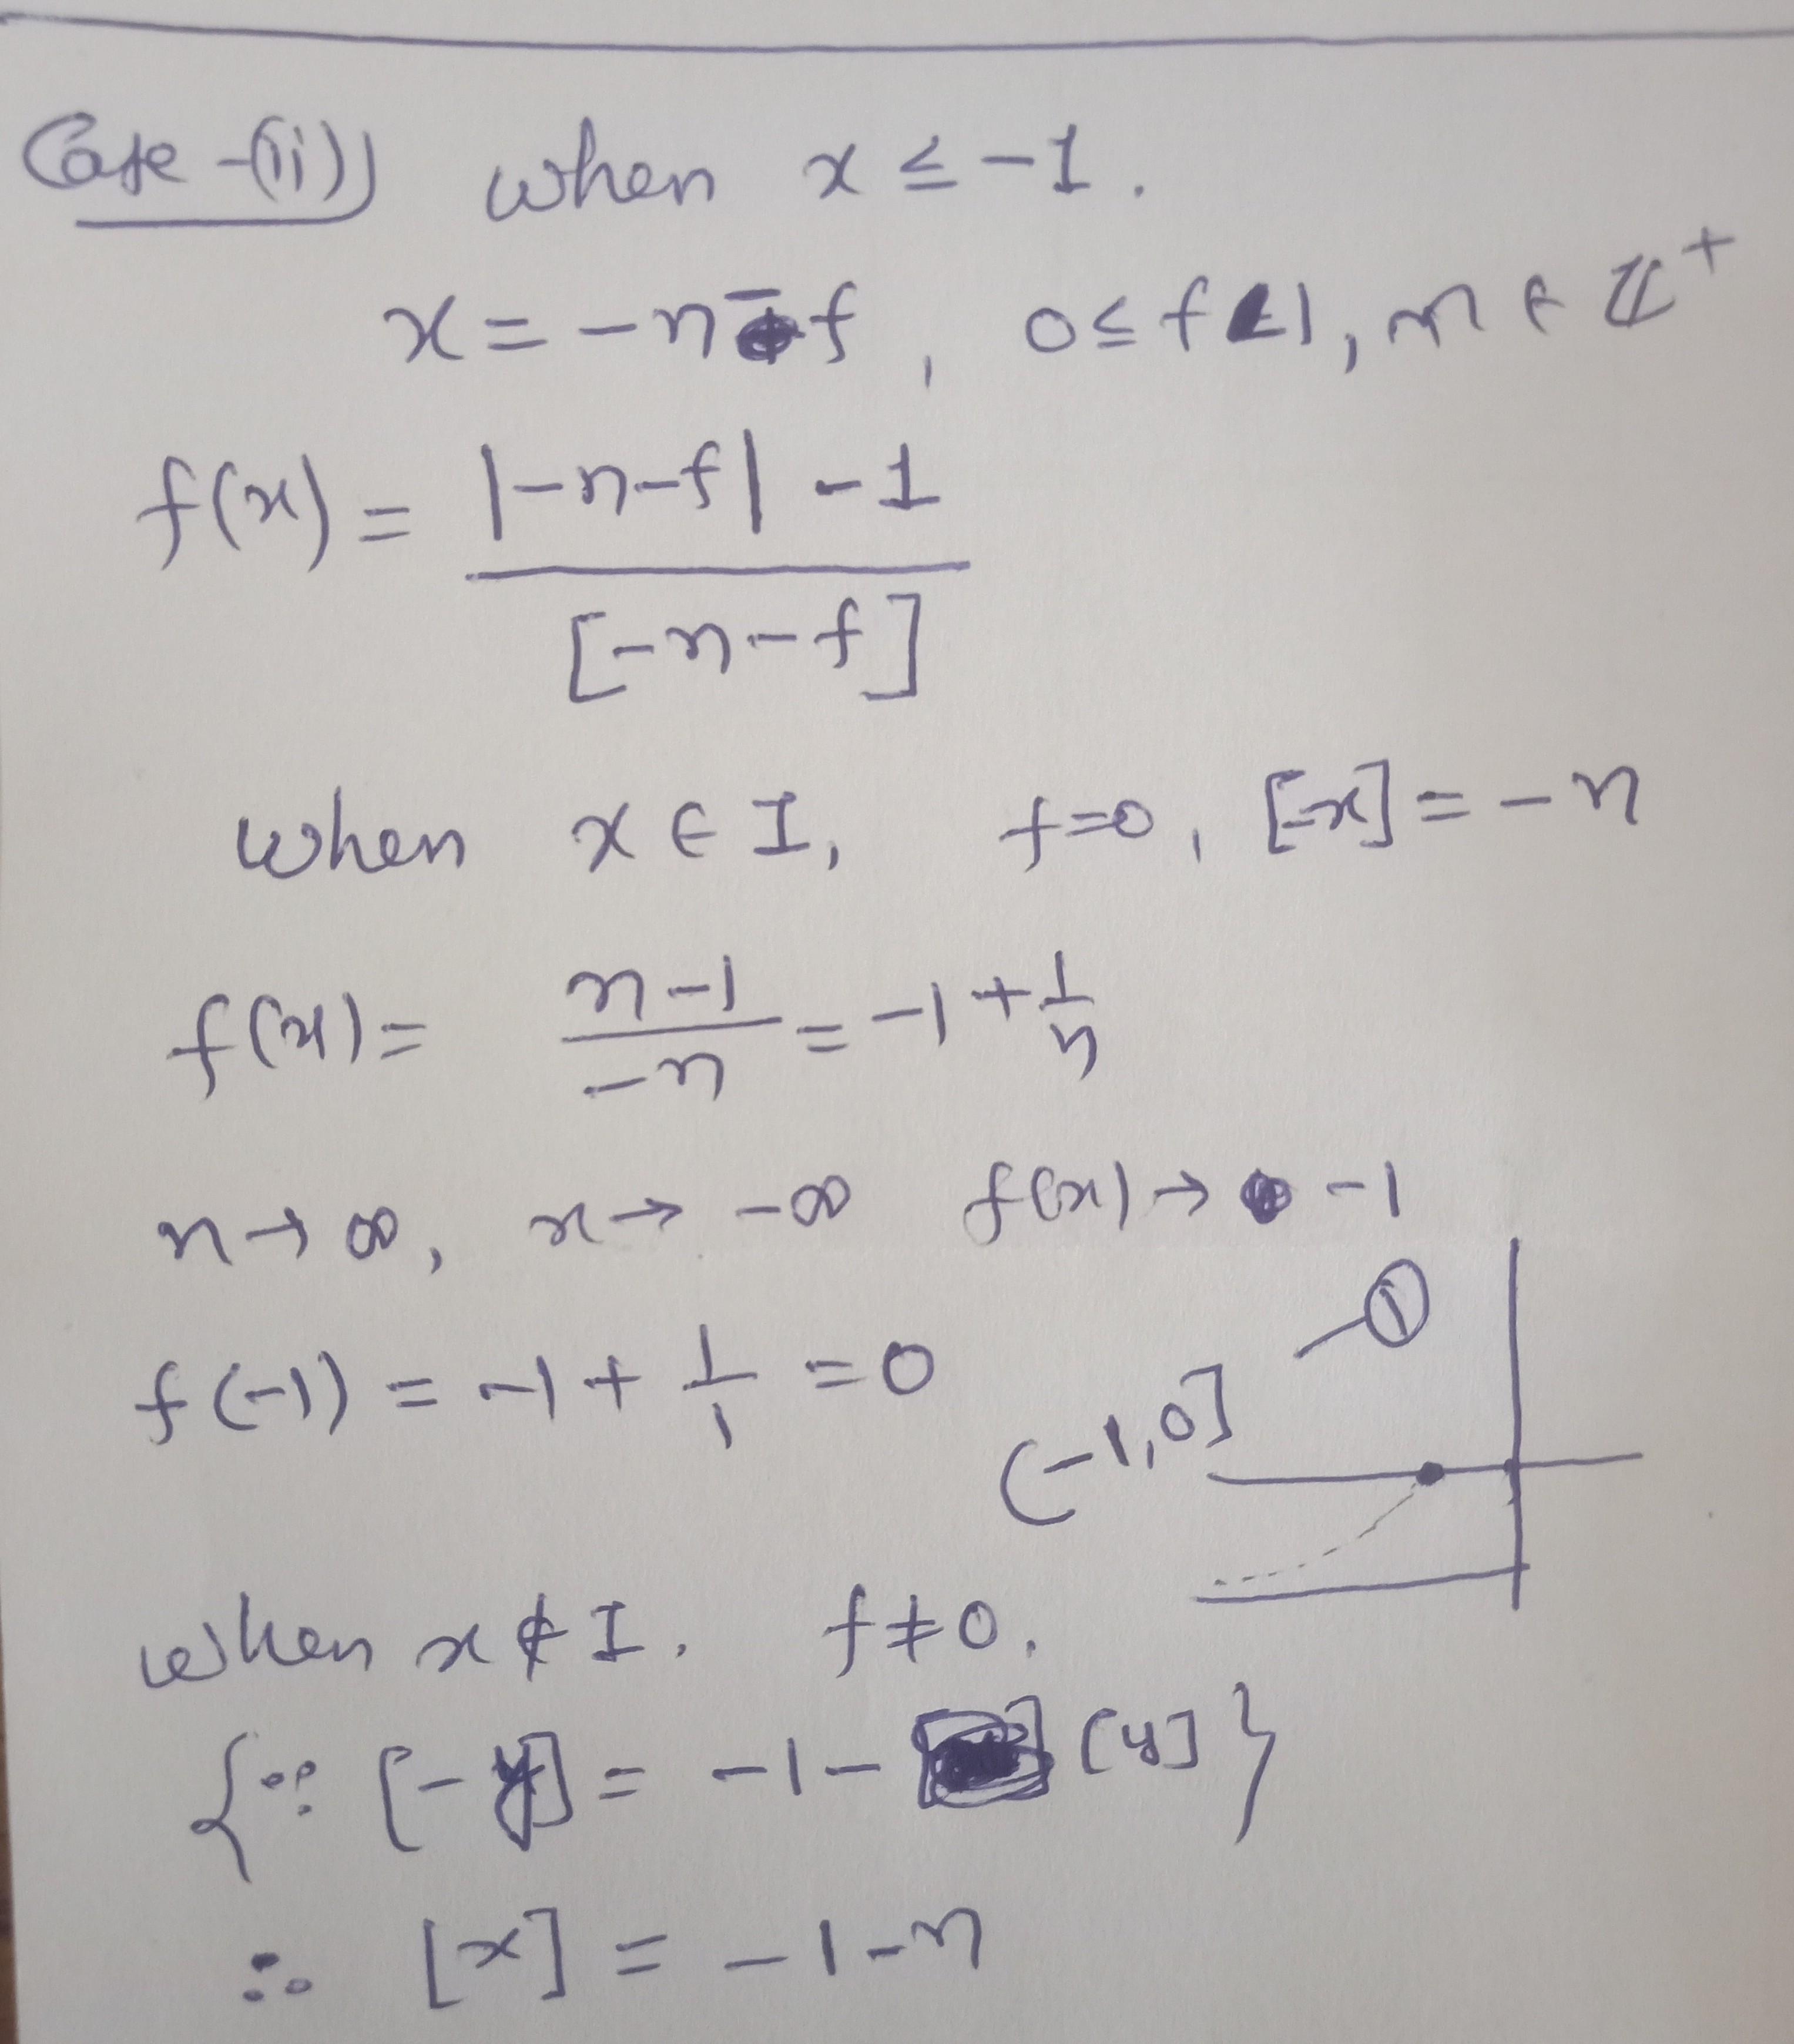 Case-(ii)) when x ≤ -1.
x = -n - f, 0 ≤ f < 1, n ∈ Z⁺
f(x) = |-n-f| - 1
[-n-f]
when x ∈ I, f=0, [-x] = -n
f(x) = n-1 / -n = -1 + 1/n
n → ∞, x → -∞ f(x) → -1
①
f(-1) = -1 + 1/1 = 0
(-1,0]
when x ∉ I, f ≠ 0.
{∵ [-y] = -1 - [y]}
∴ [x] = -1-n